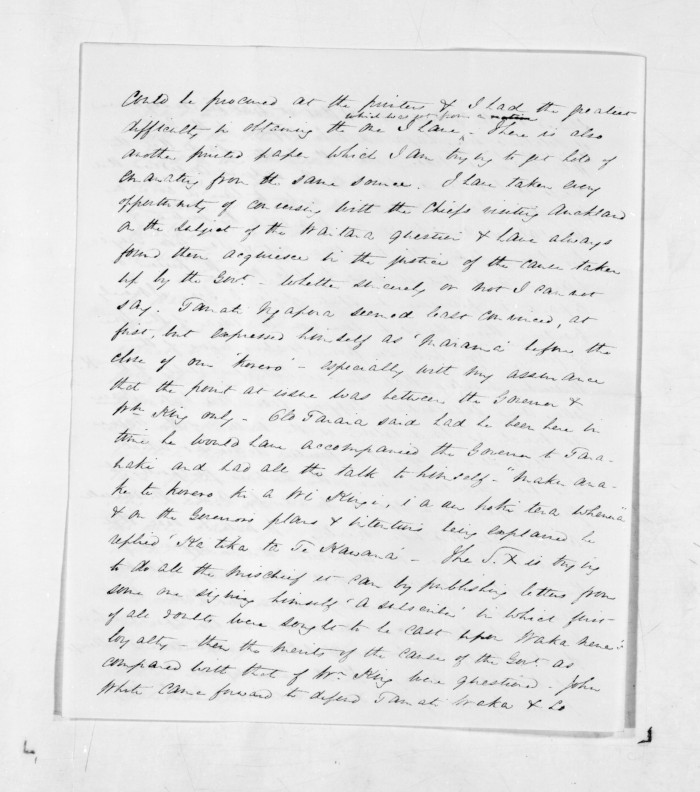 could be procured at the printers & I had the greatest
difficulty in obtaining the one I have, which was got from a native. There is also
another printed paper which I am trying to get hold of
emanating from the same source. I have taken every
opportunity of conversing with the Chiefs visiting Auckland
on the subject of the Waitara question & have always
found them acquiesce in the justice of the cause taken
up by the Govt. - Whether sincerely or not I can not
say. Tamati Ngapora seemed least convinced, at
first, but expressed himself as 'Marama' before the
close of our 'korero' - especially with my assurance
that the point at issue was between the Governor &
Wm King only - Old Taraia said had he been here in
time he would have accompanied the Governor to Tara-
naki and had all the talk to himself - "Maku ana-
ke te korero ki a Wi Kingi, i a au hoki tera whenua"
& on the Governors plans & intentions being explained he
replied 'Ka tika ta Te Kawana' - The S. X is trying
to do all the mischief it can by publishing letters from
some one signing himself 'A subscriber' in which first
of all doubts were sought to be cast upon Waka Nene's
loyalty - then the merits of the cause of the Govt. as
compared with that of Wm King were questioned. John
White came forward to defend Tamati Waka & Co